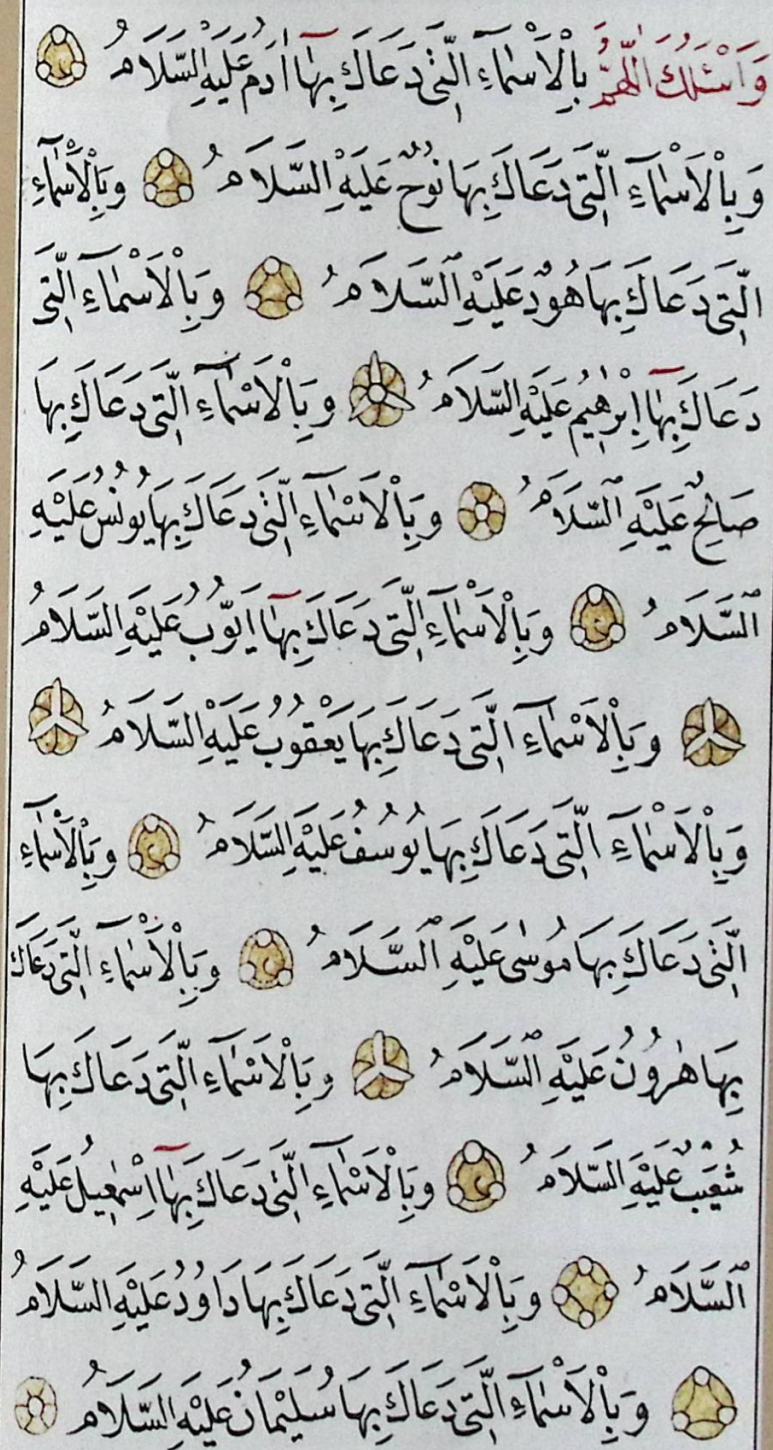 وَاَسْئَلُكَ اللّٰهُمَّ بِالْاَسْمَآءِ الَّتِى دَعَاكَ بِهَآ اٰدَمُ عَلَيْهِ السَّلَامُ
وَبِالْاَسْمَآءِ الَّتِى دَعَاكَ بِهَا نُوْحٌ عَلَيْهِ السَّلَامُ وَبِالْاَسْمَآءِ
الَّتِى دَعَاكَ بِهَا هُوْدٌ عَلَيْهِ السَّلَامُ وَبِالْاَسْمَآءِ الَّتِى
دَعَاكَ بِهَآ اِبْرٰهِيْمُ عَلَيْهِ السَّلَامُ وَبِالْاَسْمَآءِ الَّتِى دَعَاكَ بِهَا
صَالِحٌ عَلَيْهِ السَّلَامُ وَبِالْاَسْمَآءِ الَّتِى دَعَاكَ بِهَا يُونُسُ عَلَيْهِ
السَّلَامُ وَبِالْاَسْمَآءِ الَّتِى دَعَاكَ بِهَآ اَيُّوْبُ عَلَيْهِ السَّلَامُ
وَبِالْاَسْمَآءِ الَّتِى دَعَاكَ بِهَا يَعْقُوْبُ عَلَيْهِ السَّلَامُ
وَبِالْاَسْمَآءِ الَّتِى دَعَاكَ بِهَا يُوْسُفُ عَلَيْهِ السَّلَامُ وَبِالْاَسْمَآءِ
الَّتِى دَعَاكَ بِهَا مُوسٰى عَلَيْهِ السَّلَامُ وَبِالْاَسْمَآءِ الَّتِى دَعَاكَ
بِهَا هٰرُوْنُ عَلَيْهِ السَّلَامُ وَبِالْاَسْمَآءِ الَّتِى دَعَاكَ بِهَا
شُعَيْبٌ عَلَيْهِ السَّلَامُ وَبِالْاَسْمَآءِ الَّتِى دَعَاكَ بِهَآ اِسْمٰعِيْلُ عَلَيْهِ
السَّلَامُ وَبِالْاَسْمَآءِ الَّتِى دَعَاكَ بِهَا دَاوُدُ عَلَيْهِ السَّلَامُ
وَبِالْاَسْمَآءِ الَّتِى دَعَاكَ بِهَا سُلَيْمَانُ عَلَيْهِ السَّلَامُ